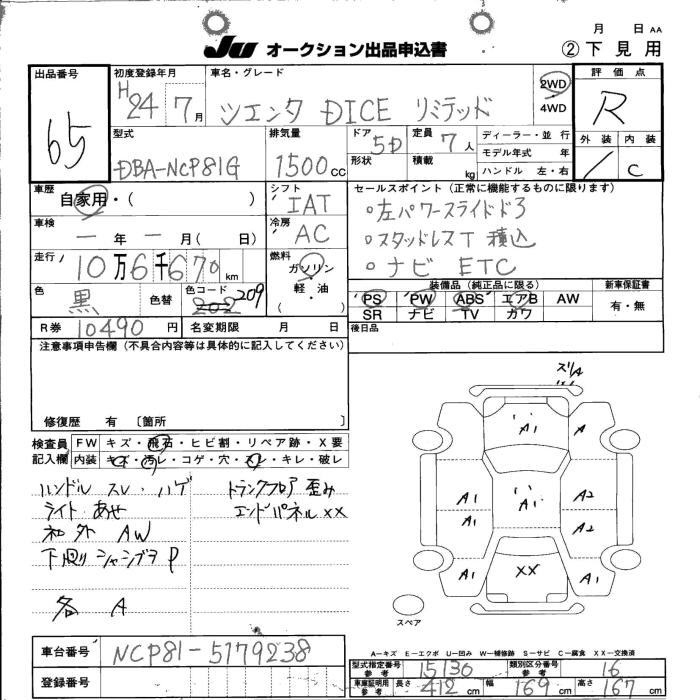 月 日 AA
JU オークション出品申込書
② 下見用
出品番号 初度登録年月 車名・グレード 2WD 評価点
65 H24 7月 シエンタ DICE リミテッド 4WD R
型式 排気量 ドア 5D 定員 7人 ディーラー・並行 外装 内装
DBA-NCP81G 1500cc 形状 積載 kg モデル年式 年 ハンドル 左・右 C
車歴 シフト セールスポイント(正常に機能するものに限ります)
自家用・( ) IAT
。左パワースライドドア
車検 冷房
ー年ー月( 日) AC
。スタッドレスT 積込
走行 燃料
10万6千670km ガソリン・軽油・( )
。ナビ ETC
色 色替 色コード 装備品(純正品に限る) 新車保証書
黒 202 209
PS PW ABS エアB AW 有・無
SR ナビ TV カワ
R券 10490円 名変期限 月 日 後日品
注意事項申告欄(不具合内容等は具体的に記入してください)
修復歴 有 [箇所 ]
検査員記入欄 FW キズ・飛石・ヒビ割・リペア跡・X要
内装 キズ・汚レ・コゲ・穴・スレ・キレ・破レ
ハンドル スレ・ハゲ トランクフロア 歪み
ライト あせ エンドパネル XX
社外 AW
下廻り P
各 A
A1 A A1
A1 A1 A2
A1 A2
A1 XX A1
スペア
A-キズ E-エクボ U-凹み W-補修跡 S-サビ C-腐食 XX-交換済
車台番号 NCP81-5179238
登録番号
型式指定番号 参考 15130 類別区分番号 参考 16
車庫証明用 参考 長さ 412cm 幅 169cm 高さ 167cm